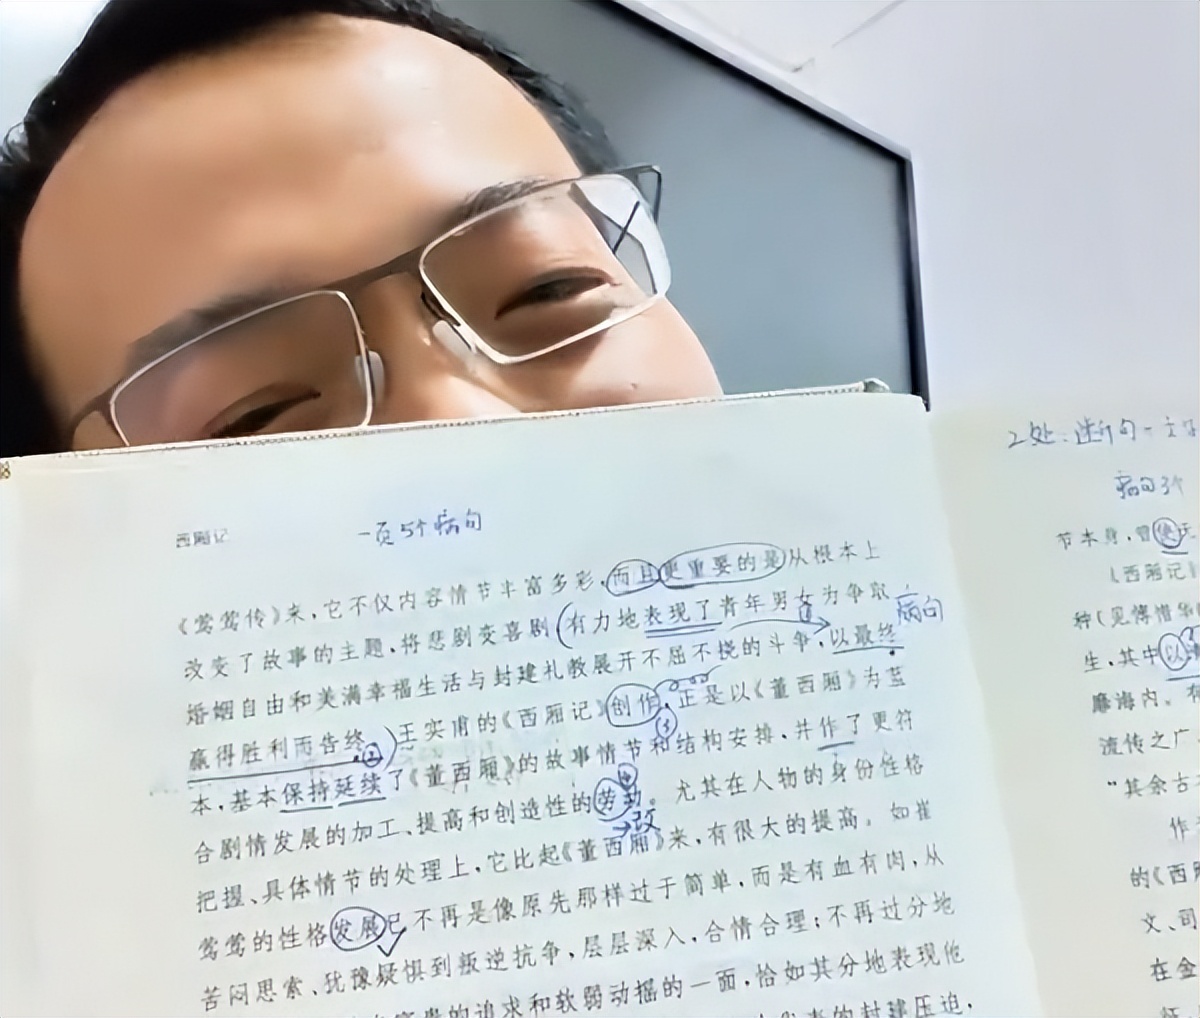 西厢记
一页5个病句
《莺莺传》来，它不仅内容情节丰富多彩，而且更重要的是从根本上
改变了故事的主题，将悲剧变喜剧(有力地表现了青年男女为争取
病句
婚姻自由和美满幸福生活与封建礼教展开不屈不挠的斗争，以最终
赢得胜利而告终。②)王实甫的《西厢记》创作，正是以《董西厢》为蓝
③
本，基本保持延续了《董西厢》的故事情节和结构安排，并作了更符
合剧情发展的加工、提高和创造性的劳动。尤其在人物的身份性格
④
改
把握、具体情节的处理上，它比起《董西厢》来，有很大的提高。如崔
莺莺的性格发展已不再是像原先那样过于简单，而是有血有肉，从
苦闷思索、犹豫疑惧到叛逆抗争，层层深入，合情合理；不再过分地
的追求和软弱动摇的一面，恰如其分地表现他
的封建压迫，
2处：断句一
病句3个
节本身，曾使
《西厢记》
种(见傅惜华
生，其中以
靡海内。有
流传之广，
“其余古
作
的《西厢
文、司
在金